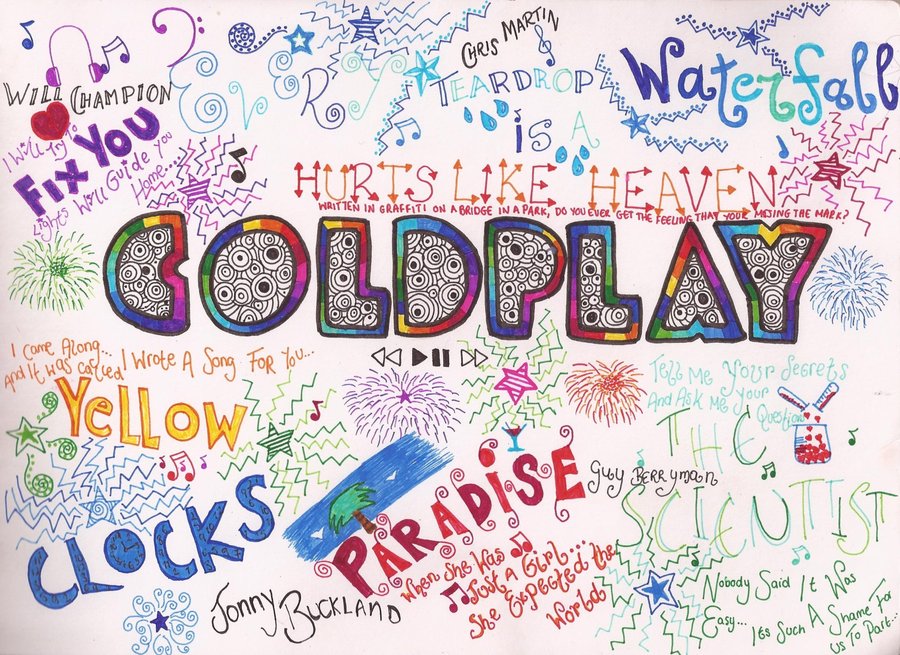 WILL CHAMPION
CHRIS MARTIN
EVERY
TEARDROP
IS A
Waterfall
I Will Try To
FIX YOU
Lights Will Guide You
Home...
HURTS LIKE HEAVEN
WRITTEN IN GRAFFITI ON A BRIDGE IN A PARK, DO YOU EVER GET THE FEELING THAT YOUR MISING THE MARK?
COLDPLAY
I Came Along...
I Wrote A Song For You...
And It was called
YELLOW
Tell Me Your Secrets
And Ask Me Your
Questions
THE
SCIENTIST
Nobody Said It Was
Easy...
Its Such A Shame For
Us To Part...
Guy BERRYman
CLOCKS
PARADISE
When She Was
Just A Girl...
She Expected the
World
Jonny BUCKLAND